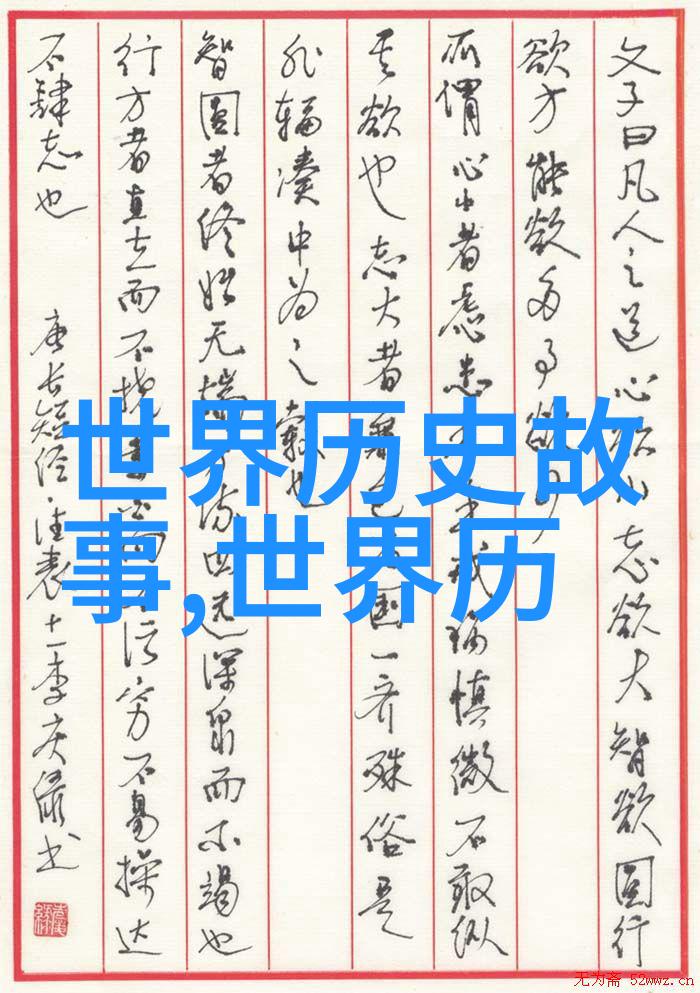 文子曰凡人之道心欲小志欲大智欲圆行
欲方能欲多事欲少
所谓心小者虑患未生戒祸慎微不敢纵
其欲也志大者兼包万国一齐殊俗是
非辐凑中为之毂也
智圆者终始无端方流四远深泉而不竭也
行方者直立而不挠素白而不污穷不易操达
不肆志也
唐长短经 十一 李庆 书
世界历史故
事,世界历
无为斋 52wwz.cn